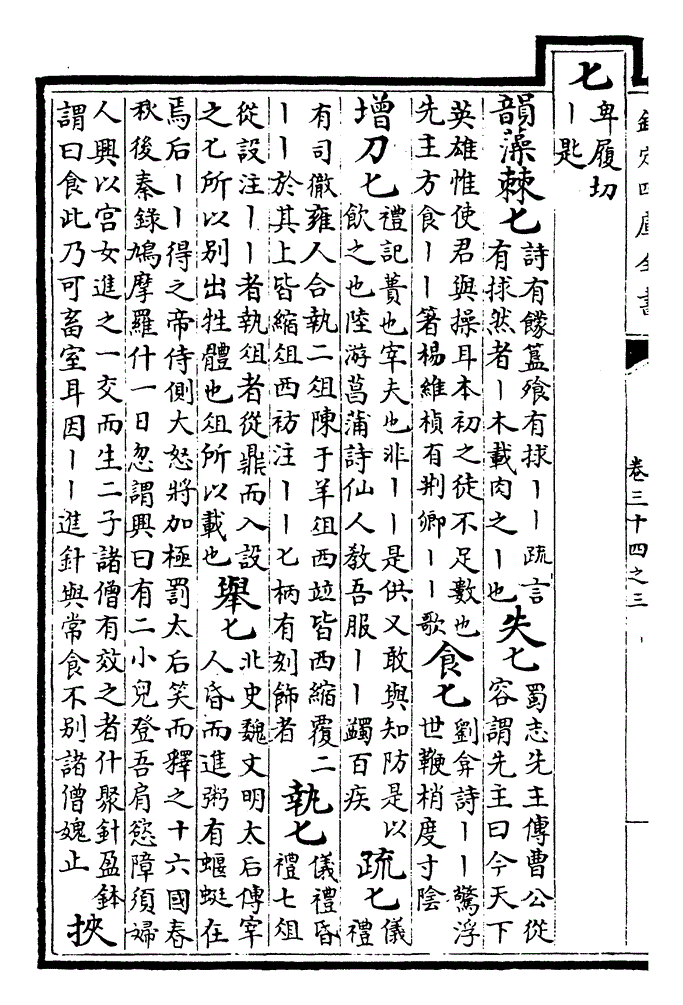 欽定四庫全書
卷三十四之三
匕
卑履切
｜匙
韻藻棘匕
詩有饛簋飱有捄｜｜疏言
有捄然者｜木載肉之｜也
失匕
蜀志先主傳曹公從
容謂先主曰今天下
英雄惟使君與操耳本初之徒不足數也
先主方食｜｜箸楊維楨有荆卿｜｜歌
食匕
劉弇詩｜｜驚浮
世鞭梢度寸陰
增刀匕
禮記蕢也宰夫也非｜｜是供又敢與知防是以
飲之也陸游菖蒲詩仙人教吾服｜｜蠲百疾
疏匕
儀
禮
有司徹雍人合執二俎陳于羊俎西竝皆西縮覆二
｜｜於其上皆縮俎西枋注｜｜匕柄有刻飾者
執匕
儀禮昏
禮匕俎
從設注｜｜者執俎者從鼎而入設
之匕所以别出牲體也俎所以載也
舉匕
北史魏文明太后傳宰
人昏而進粥有蝘蜓在
焉后｜｜得之帝侍側大怒將加極罰太后笑而釋之十六國春
秋後秦錄鳩摩羅什一日忽謂興曰有二小兒登吾肩慾障須婦
人興以宫女進之一交而生二子諸僧有效之者什聚針盈鉢
謂曰食此乃可畜室耳因｜｜進針與常食不别諸僧媿止
挾